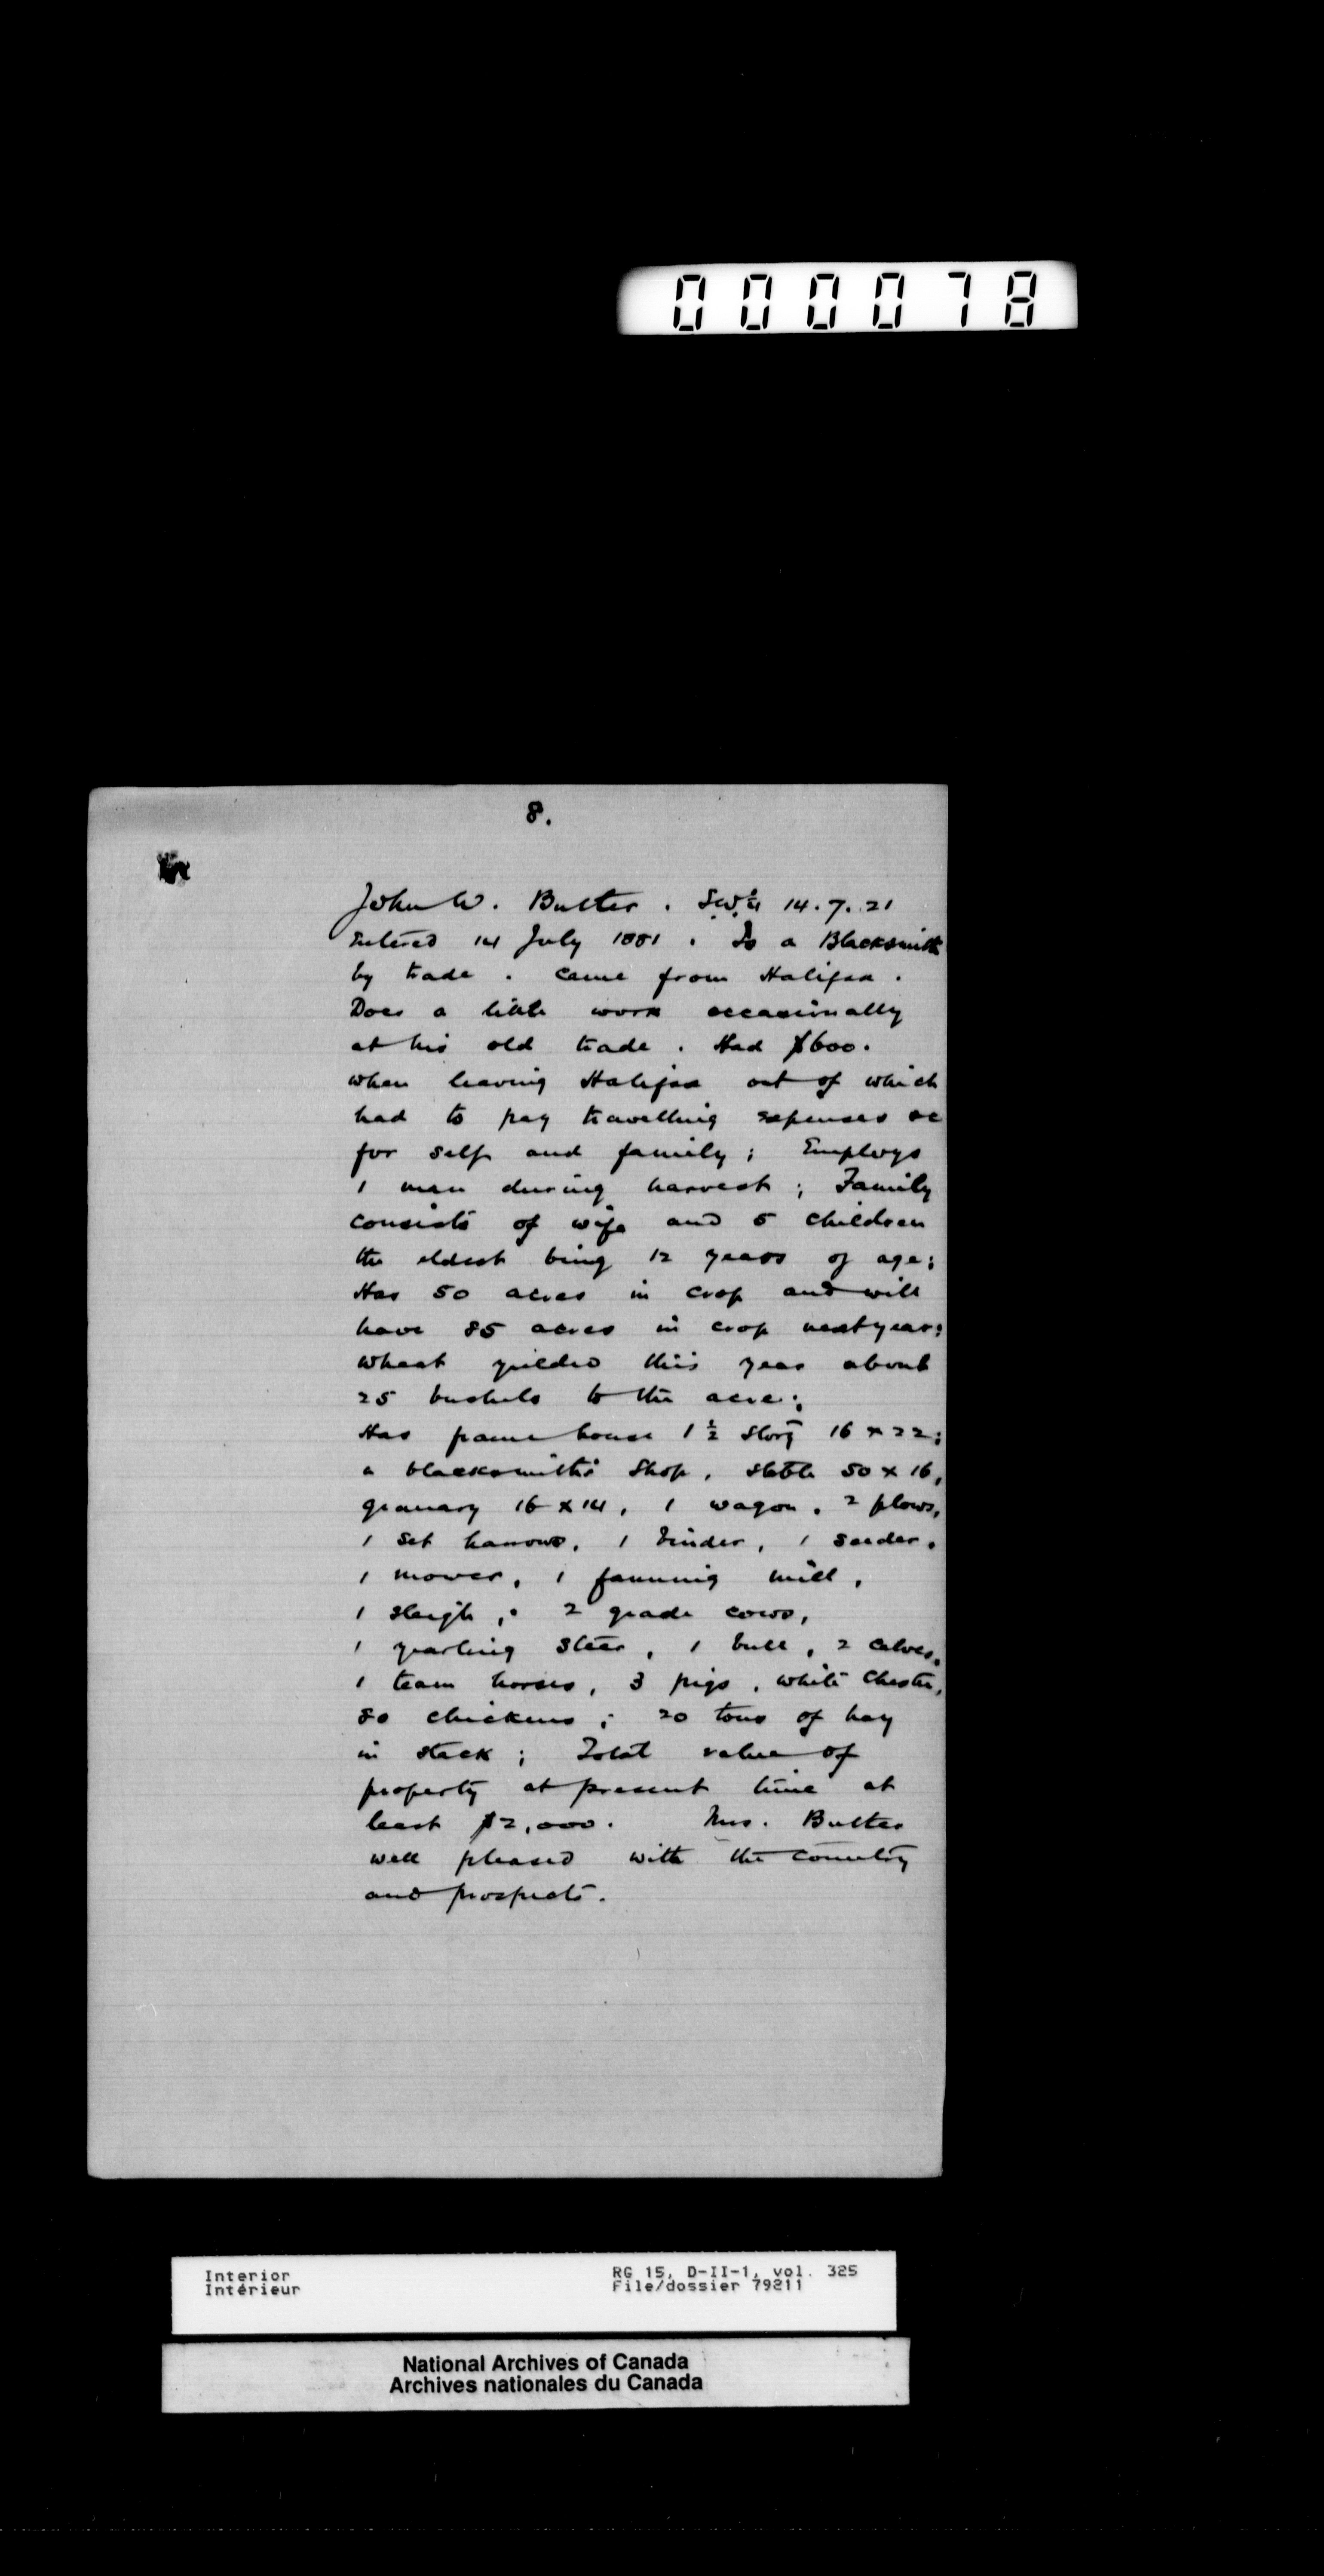 000078
8.
John W. Butter. S.W.¼ 14.7.21
Entered 14 July 1881. Is a Blacksmith
by trade. Came from Halifax.
Does a little work occasionally
at his old trade. Had $600.
when leaving Halifax out of which
had to pay travelling expenses &c
for self and family; Employs
1 man during harvest; Family
consists of wife and 5 children
the eldest being 12 years of age;
Has 50 acres in crop and will
have 85 acres in crop next year;
Wheat yielded this year about
25 bushels to the acre;
Has frame house 1 ½ story 16 x 22;
a blacksmith's shop, stable 50 x 16,
granary 16 x 14, 1 wagon, 2 plows,
1 set harrows, 1 binder, 1 seeder,
1 mower, 1 fanning mill,
1 sleigh; 2 grade cows,
1 yearling steer, 1 bull, 2 calves,
1 team horses, 3 pigs, white Chester,
80 chickens; 20 tons of hay
in stack; Total value of
property at present time at
least $2,000. Mrs. Butter
well pleased with the country
and prospects.
Interior
Intérieur
RG 15, D-II-1, vol. 325
File/dossier 79211
National Archives of Canada
Archives nationales du Canada